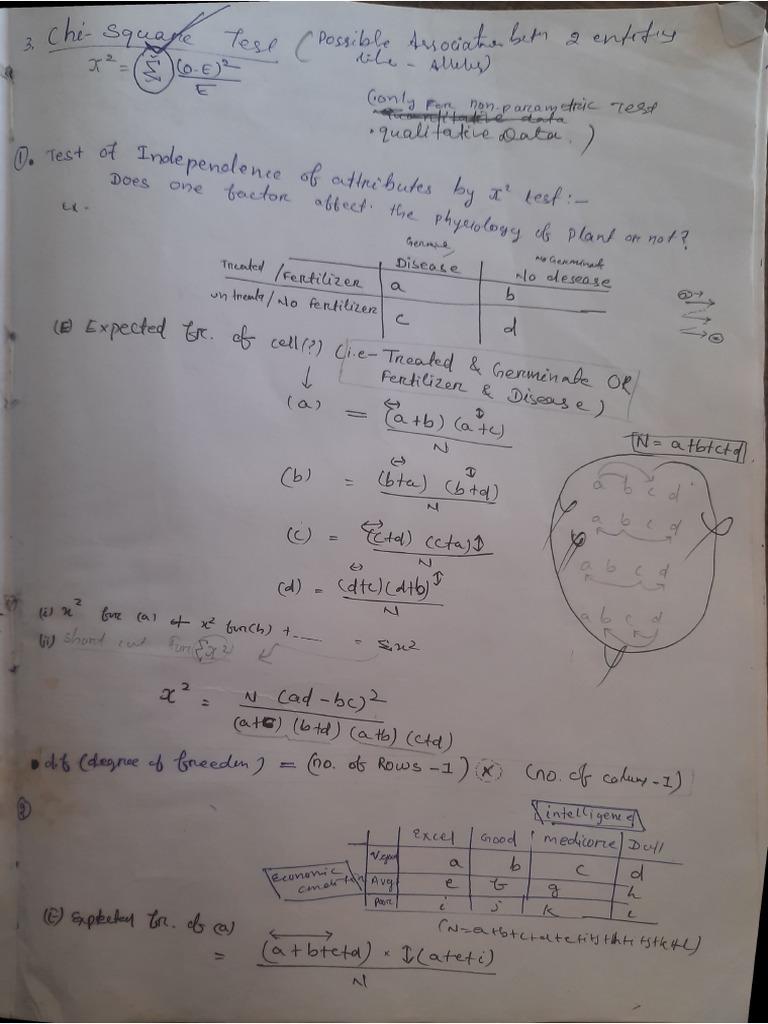 3. Chi-Square Test (Possible Association betn 2 entitys
like - Alleles)
x² = Σ (O-E)²/E
(only for non-parametric Test
quantitative data
• qualitative Data.)
①. Test of Independence of attributes by x² test:-
Does one factor affect the physiology of plant or not?
Germi No Germinate
Treated / Fertilizer Disease No desease
a b
untreate / No fertilizer c d
(E) Expected fr. of cell(?) (i.e- Treated & Germinate OR
Fertilizer & Disease)
↓
(a) = (a+b) (a+c) / N
N = a+b+c+d
(b) = (b+a) (b+d) / N
a b c d
a b c d
(c) = (c+d) (c+a) / N
a b c d
(d) = (d+c)(d+b) / N
a b c d
(i) x² for (a) + x² for(b) + --- = Σx²
(ii) short cut for Σx²
x² = N (ad-bc)² / (a+c) (b+d) (a+b) (c+d)
• df (degree of freedom) = (no. of Rows -1) × (no. of colum -1)
②
intelligence
Excel Good medicorie Dull
a b c d
Economic condition Avg e f g h
Poor i j k l
(E) Expected fr. of (a) (N=a+b+c+d+e+f+g+h+i+j+k+l)
= (a+b+c+d) × (a+e+i) / N